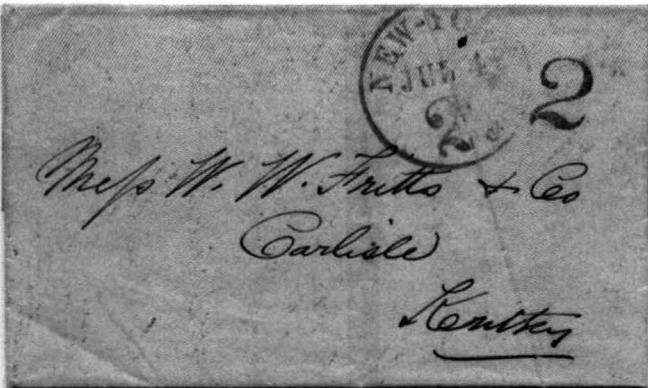 NEW-YO
JUL
2
2
Mess W. W. Fritts & Co
Carlisle
Kentky